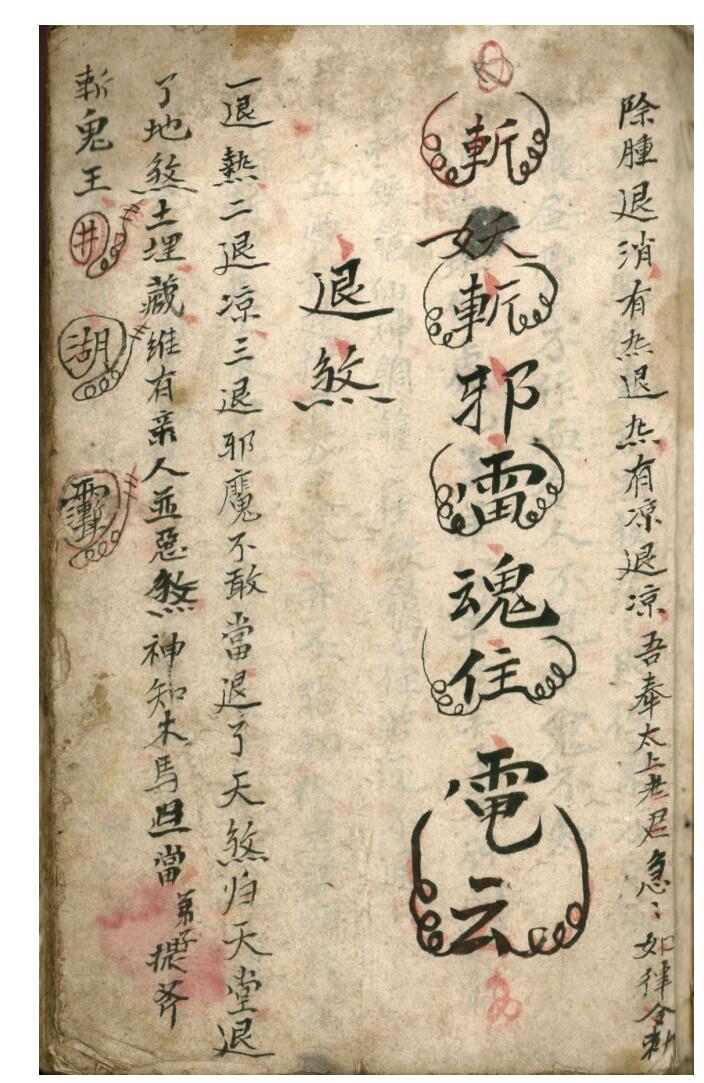 除腫退消有㷉退㷉有凉退凉吾奉太上老君急〻如律令敕
斬妖斬邪雷魂住電云
退煞
一退熱二退凉三退邪魔不敢當退了天煞归天堂退
了地煞土埋藏維有亲人並惡煞神知木馬担當弟子摆斧
斬鬼王井湖